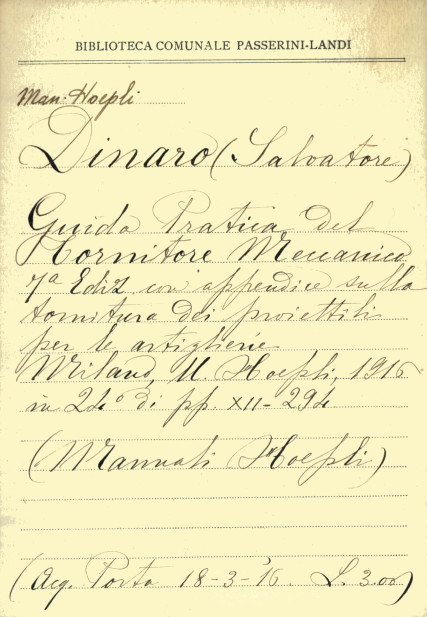 BIBLIOTECA COMUNALE PASSERINI-LANDI
Man. Hoepli
Dinaro (Salvatore)
Guida Pratica del
Tornitore Meccanico
7ª Ediz con appendice sulla
tornitura dei proiettili
per le artiglierie
Milano, U. Hoepli, 1916
in 24° di pp. XII-294
(Manuali Hoepli)
(Acq. Porta 18-3-'16. L. 3.00)